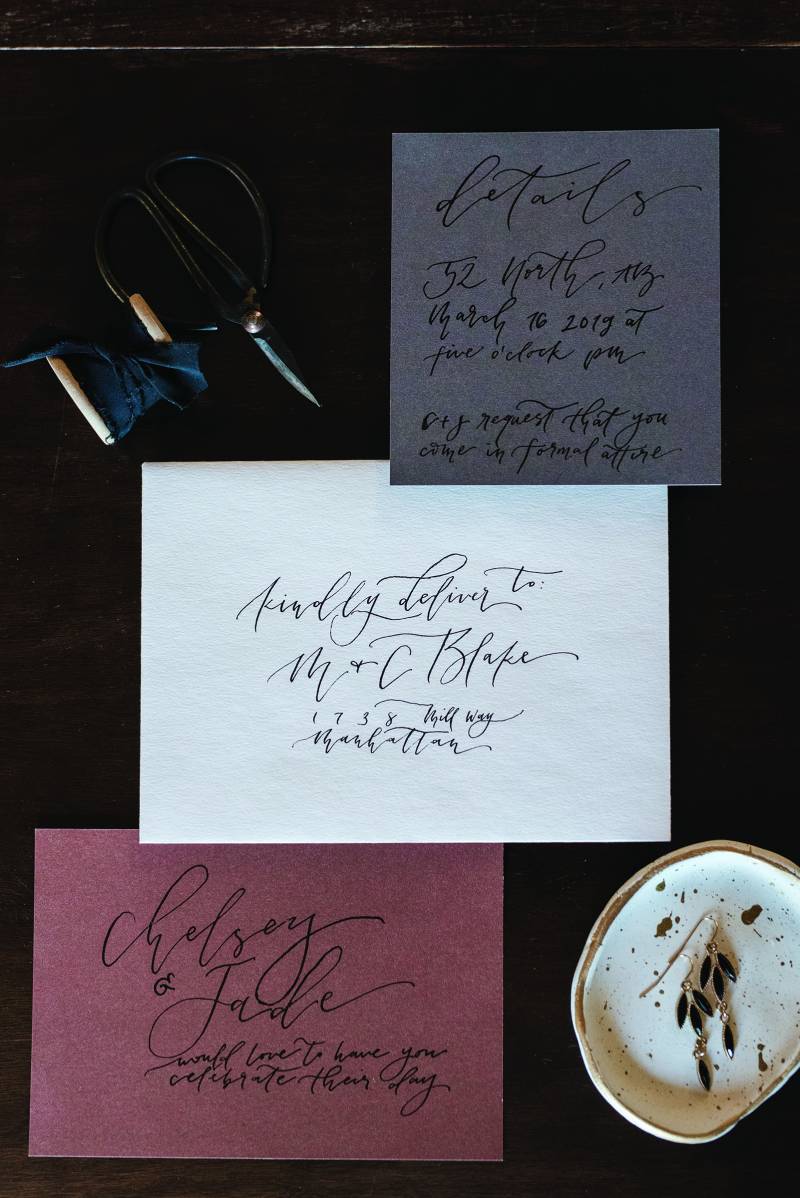 details
52 North, NZ
March 16 2019 at
five o'clock pm
c+j request that you
come in formal attire
kindly deliver to:
M + C Blake
1738 Mill Way
Manhattan
Chelsey
& Jade
would love to have you
celebrate their day